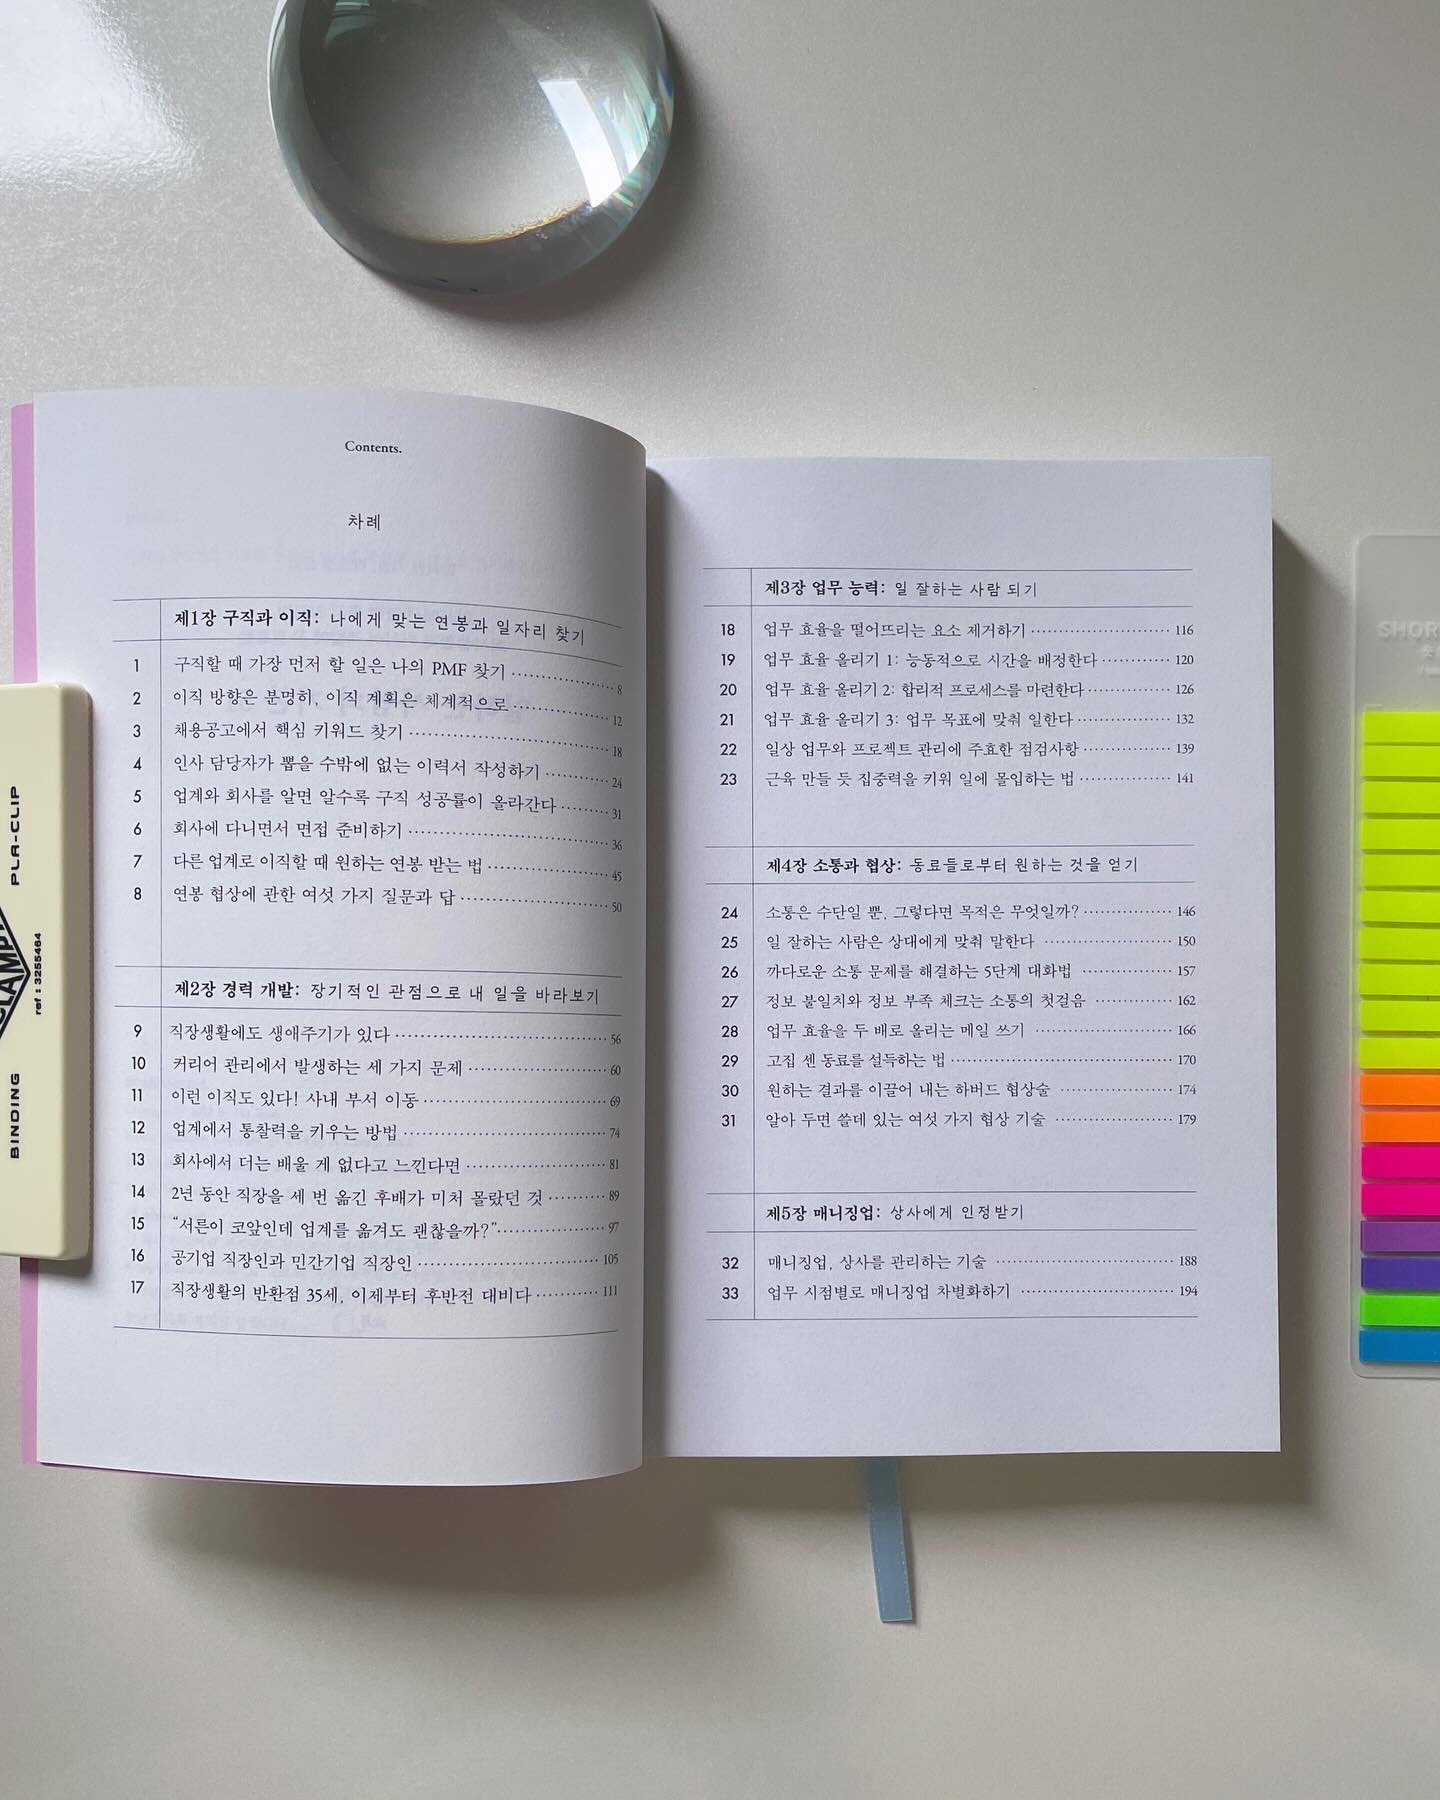 Contents.
차례
제1장 구직과 이직: 나에게 맞는 연봉과 일자리 찾기
1 구직할 때 가장 먼저 할 일은 나의 PMF 찾기 8
2 이직 방향은 분명히, 이직 계획은 체계적으로 12
3 채용공고에서 핵심 키워드 찾기 18
4 인사 담당자가 뽑을 수밖에 없는 이력서 작성하기 24
5 업계와 회사를 알면 알수록 구직 성공률이 올라간다 31
6 회사에 다니면서 면접 준비하기 36
7 다른 업계로 이직할 때 원하는 연봉 받는 법 45
8 연봉 협상에 관한 여섯 가지 질문과 답 50
제2장 경력 개발: 장기적인 관점으로 내 일을 바라보기
9 직장생활에도 생애주기가 있다 56
10 커리어 관리에서 발생하는 세 가지 문제 60
11 이런 이직도 있다! 사내 부서 이동 69
12 업계에서 통찰력을 키우는 방법 74
13 회사에서 더는 배울 게 없다고 느낀다면 81
14 2년 동안 직장을 세 번 옮긴 후배가 미처 몰랐던 것 89
15 “서른이 코앞인데 업계를 옮겨도 괜찮을까?” 97
16 공기업 직장인과 민간기업 직장인 105
17 직장생활의 반환점 35세, 이제부터 후반전 대비다 111
제3장 업무 능력: 일 잘하는 사람 되기
18 업무 효율을 떨어뜨리는 요소 제거하기 116
19 업무 효율 올리기 1: 능동적으로 시간을 배정한다 120
20 업무 효율 올리기 2: 합리적 프로세스를 마련한다 126
21 업무 효율 올리기 3: 업무 목표에 맞춰 일한다 132
22 일상 업무와 프로젝트 관리에 주효한 점검사항 139
23 근육 만들 듯 집중력을 키워 일에 몰입하는 법 141
제4장 소통과 협상: 동료들로부터 원하는 것을 얻기
24 소통은 수단일 뿐, 그렇다면 목적은 무엇일까? 146
25 일 잘하는 사람은 상대에게 맞춰 말한다 150
26 까다로운 소통 문제를 해결하는 5단계 대화법 157
27 정보 불일치와 정보 부족 체크는 소통의 첫걸음 162
28 업무 효율을 두 배로 올리는 메일 쓰기 166
29 고집 센 동료를 설득하는 법 170
30 원하는 결과를 이끌어 내는 하버드 협상술 174
31 알아 두면 쓸데 있는 여섯 가지 협상 기술 179
제5장 매니징업: 상사에게 인정받기
32 매니징업, 상사를 관리하는 기술 188
33 업무 시점별로 매니징업 차별화하기 194
PLA-CLIP
CLAMP
ref : 3255464
BINDING
SHOR